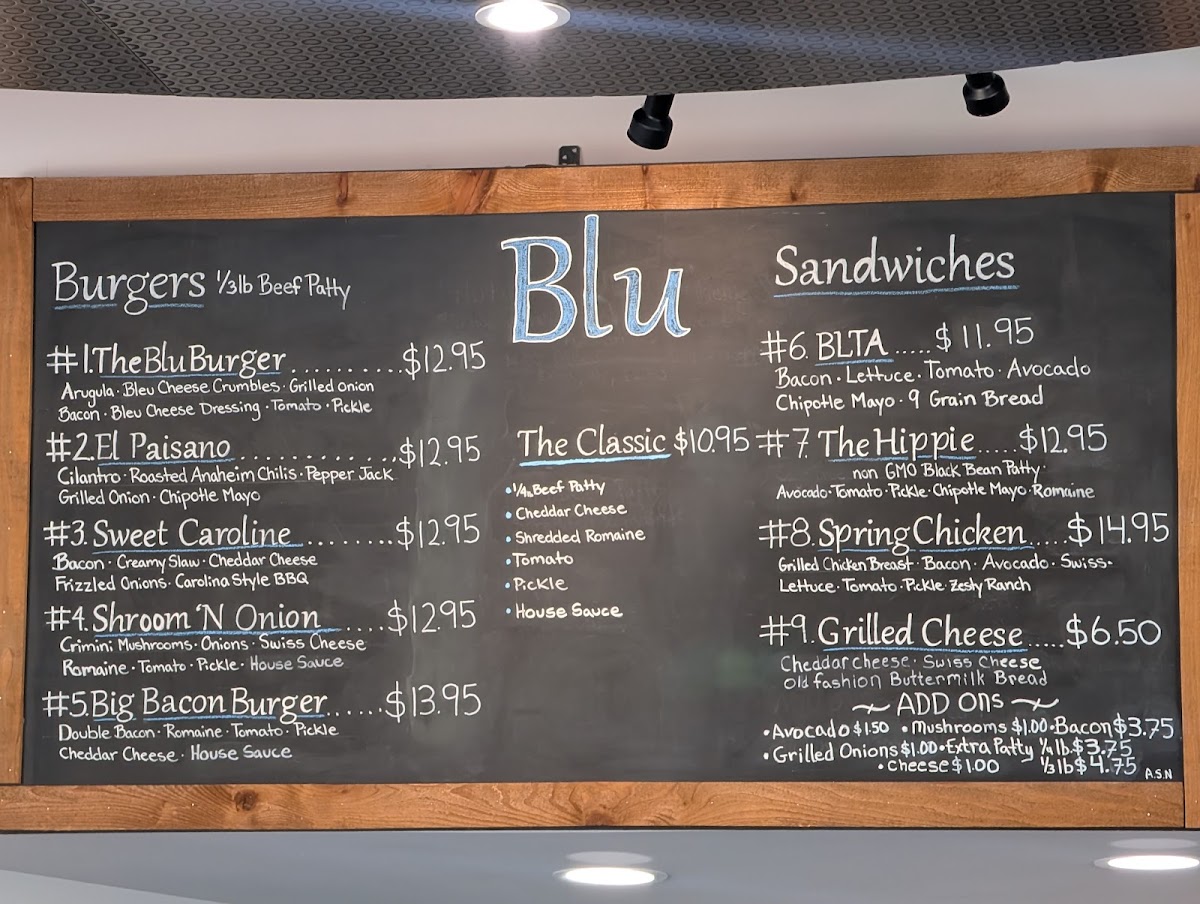 Blu
Burgers 1/3lb Beef Patty
#1.The Blu Burger..........$12.95
Arugula · Bleu Cheese Crumbles · Grilled onion
Bacon · Bleu Cheese Dressing · Tomato · Pickle
#2.El Paisano............$12.95
Cilantro · Roasted Anaheim Chilis · Pepper Jack
Grilled Onion · Chipotle Mayo
#3. Sweet Caroline........$12.95
Bacon · Creamy Slaw · Cheddar Cheese
Frizzled Onions · Carolina Style BBQ
#4. Shroom 'N Onion.....$12.95
Crimini Mushrooms · Onions · Swiss Cheese
Romaine · Tomato · Pickle · House Sauce
#5.Big Bacon Burger......$13.95
Double Bacon · Romaine · Tomato · Pickle
Cheddar Cheese · House Sauce
The Classic $10.95
•1/4lb Beef Patty
• Cheddar Cheese
• Shredded Romaine
•Tomato
•Pickle
• House Sauce
Sandwiches
#6. BLTA.....$11.95
Bacon · Lettuce · Tomato · Avocado
Chipotle Mayo · 9 Grain Bread
#7. The Hippie.....$12.95
non GMO Black Bean Patty·
Avocado · Tomato · Pickle · Chipotle Mayo · Romaine
#8. Spring Chicken.....$14.95
Grilled Chicken Breast · Bacon · Avocado · Swiss·
Lettuce · Tomato · Pickle · Zesty Ranch
#9. Grilled Cheese.....$6.50
Cheddar cheese · Swiss Cheese
old fashion Buttermilk Bread
~ ADD Ons ~
•Avocado $1.50 •Mushrooms $1.00 •Bacon $3.75
•Grilled Onions $1.00 •Extra Patty 1/4 lb.$3.75
•cheese $1.00 1/3 lb $4.75
A.S.N